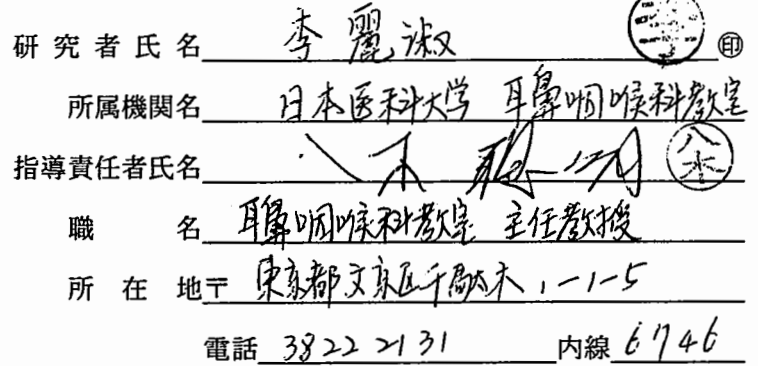 研究者氏名 李麗淑 印
所属機関名 日本医科大学 耳鼻咽喉科教室
指導責任者氏名 八木聰明 八木
職名 耳鼻咽喉科教室 主任教授
所在地〒 東京都文京区千駄木1-1-5
電話 3822 2131 内線 6746